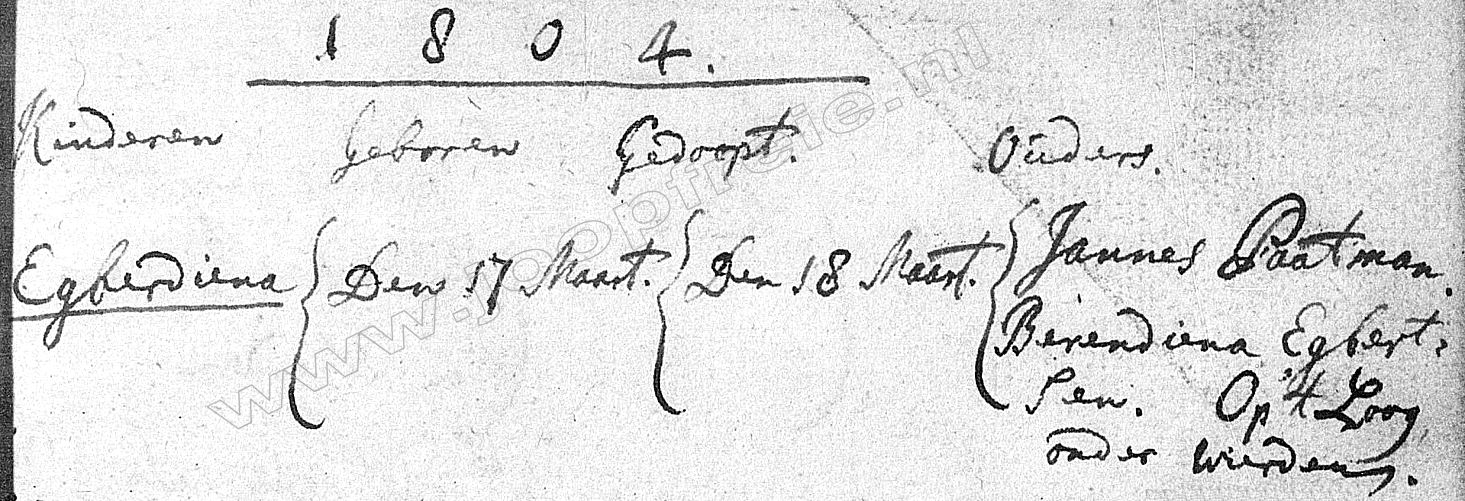 1 8 0 4.
Kinderen Geboren Gedoopt. Ouders.
Egberdiena Den 17 Maart. Den 18 Maart. Jannes Paatman.
Berendiena Egbert:
sen. Op 't Loog,
onder Wierden.
www.joopfreie.nl